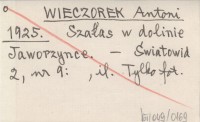 WIECZOREK Antoni
1925. Szałas w dolinie
Jaworzynce. - Światowid
2, nr 9: , il. Tylko fot.